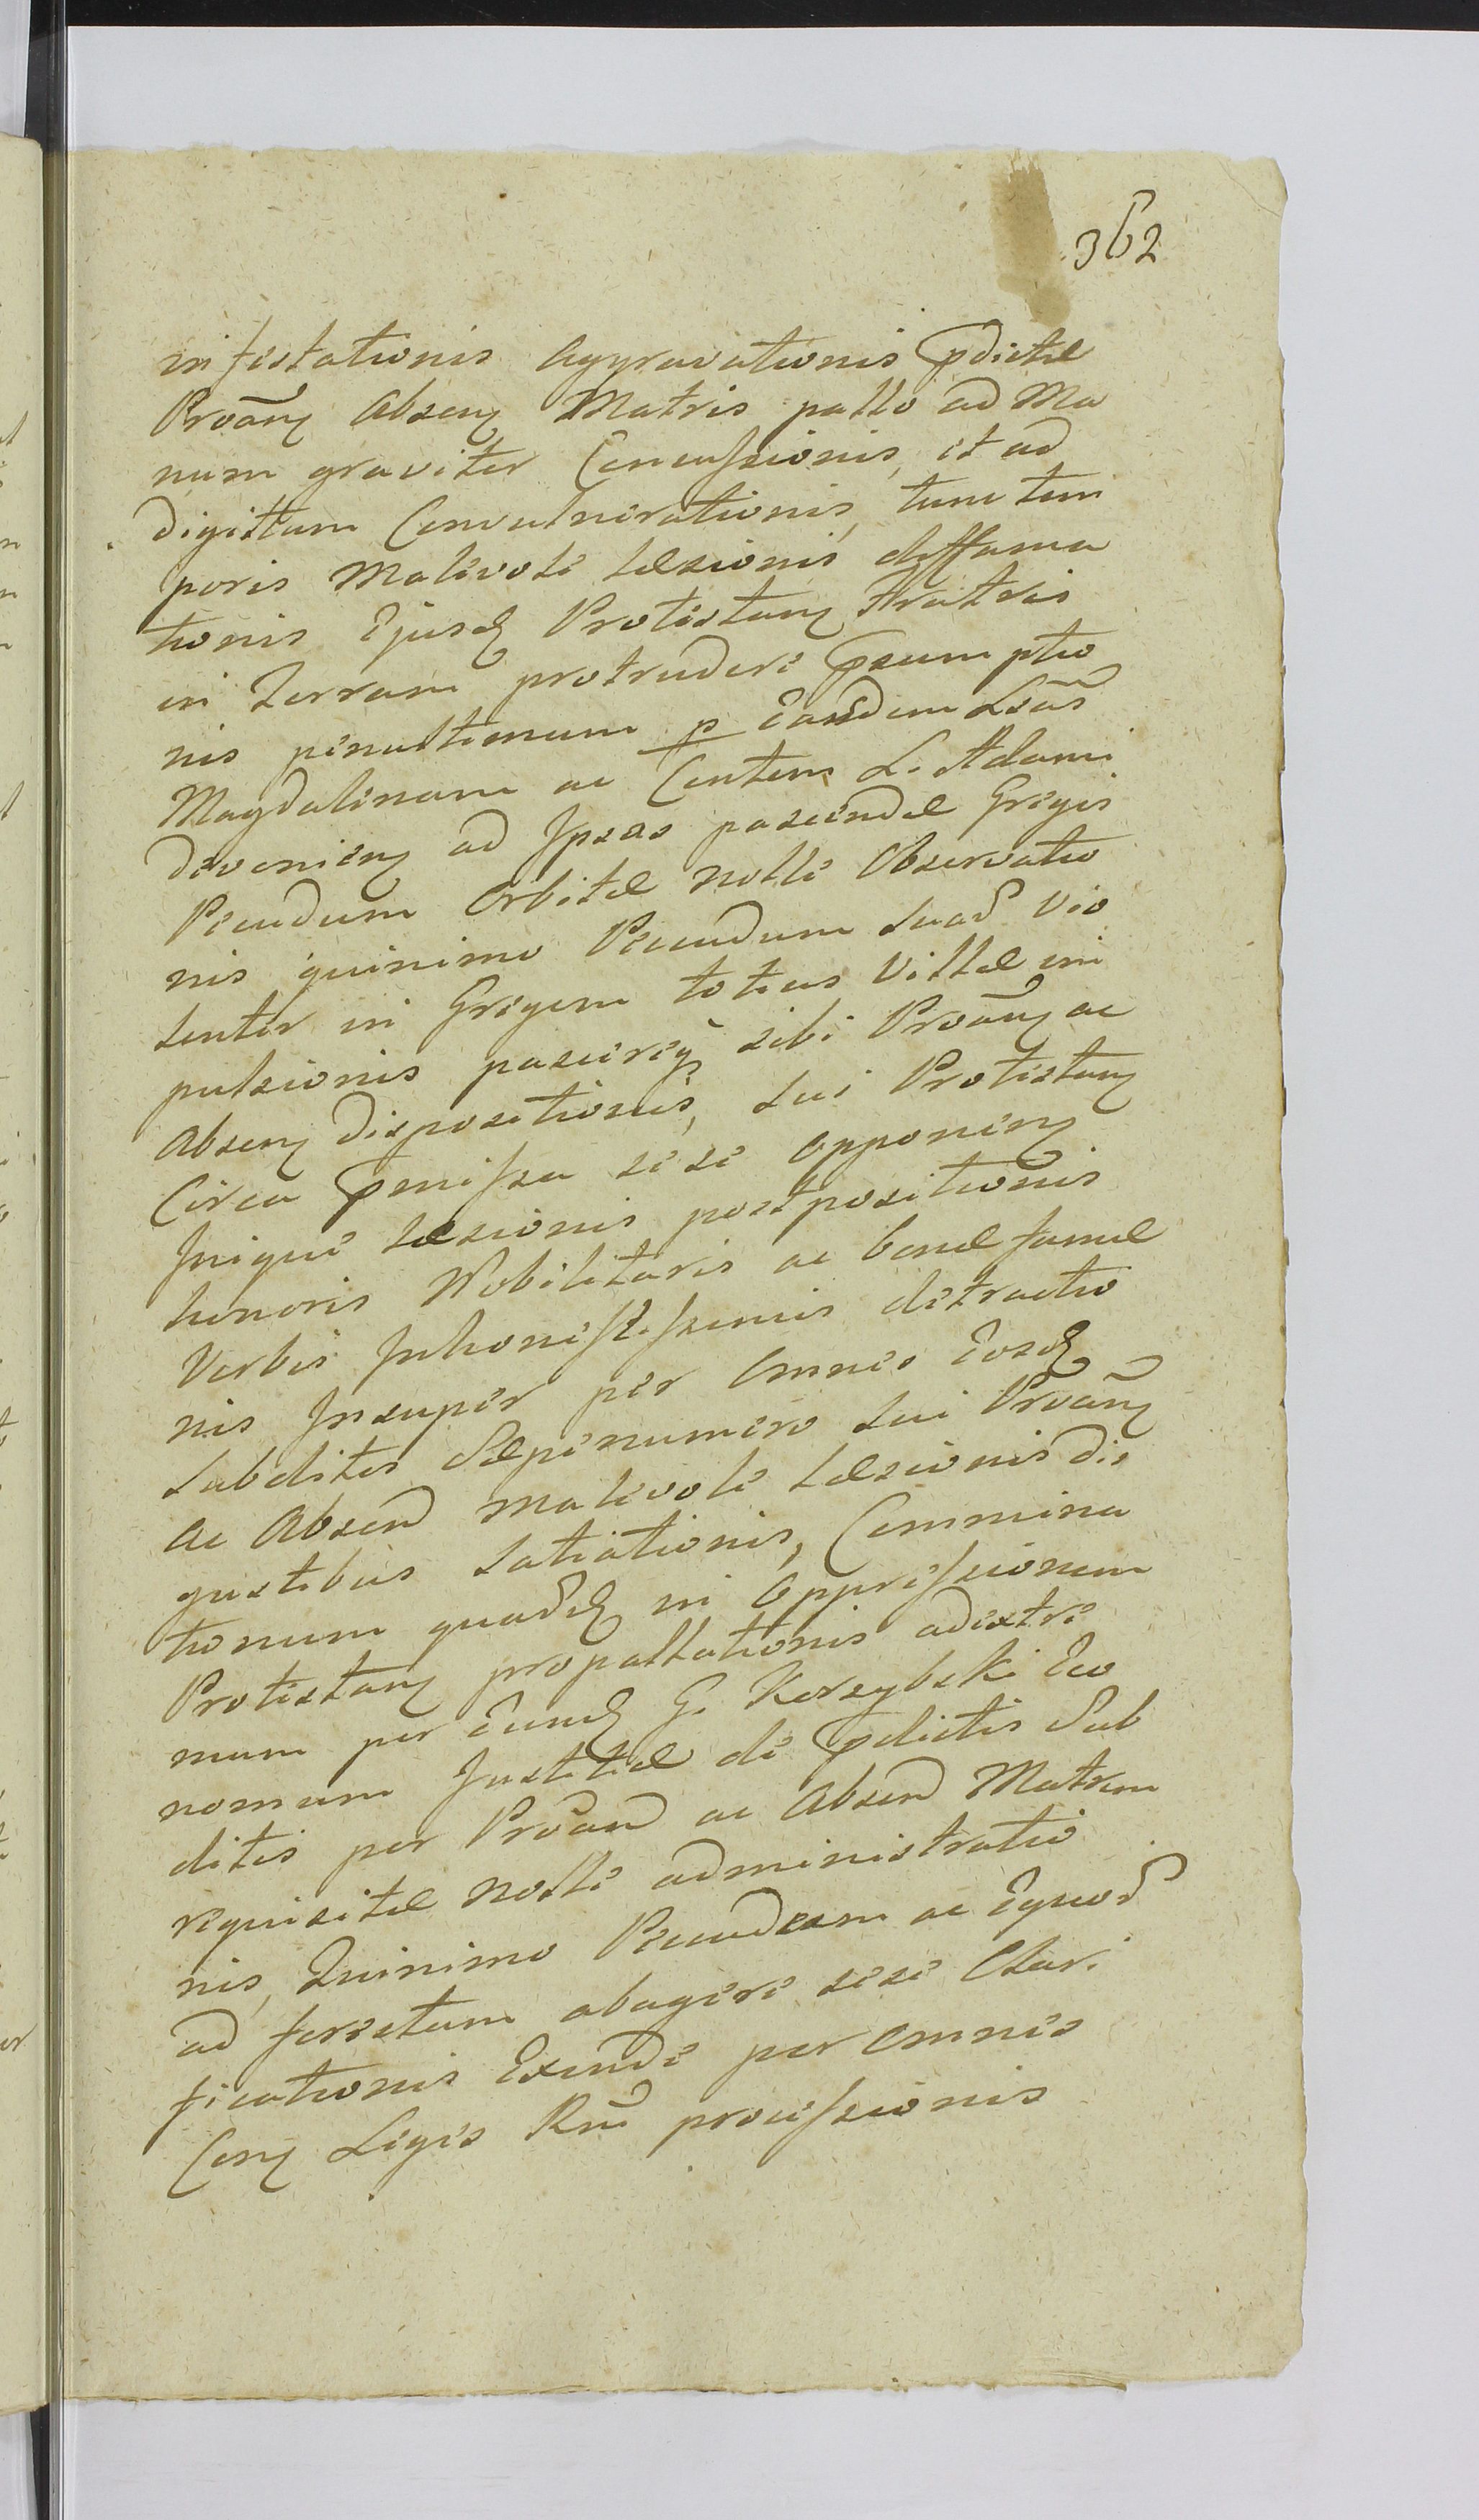 362
infestationis aggravationis pdictæ
Proãnꝫ Absenꝫ Matris pallo ad Ma
num graviter Concussionis, et ad
digittum Convulnerationis, tum tem
poris Malevole læsionis diffama
tionis Ejusdꝫ Protestanꝫ Fratris
in Terram protrudere psumptio
nis penultimum p Eandem Lsãs
Magdalenam ac Conten L. Adami
devenienꝫ ad Ipsas pascendæ Gregis
Pecudum Orbitæ nolle Observatio
nis quinimo Pecudum suar Vio
lenter in Gregem totius Villæ im
pulsionis pascereqꝫ sibi Proãnꝫ ac
Absenꝫ dispositionis, sui Protestanꝫ
Circa pmissa sese opponenꝫ
Inique læsionis postpositionis
honoris Nobilitaris ac bonæ famæ
Verbis Inhonestissimis detractio
nis Insuper per Omnes Eosdꝫ
subditos Sæpenumero sui Proãnꝫ
ac Absen malevole læsionis dis
gustibus satiationis, Commina
tionum quardꝫ in Oppressionem
Protestanꝫ propallationis adextre
mum per Eundꝫ G. Korzybski Eco
nomum Justitiæ de pdictis Sub
ditis per Proãn ac Absen Matrem
requisitæ nolle administratio
nis, Quinimo Pecudum ac Equor
ad forsetum abagere sese Clari
ficationis Exinde per omnes
Conꝫ Leges Rni processionis